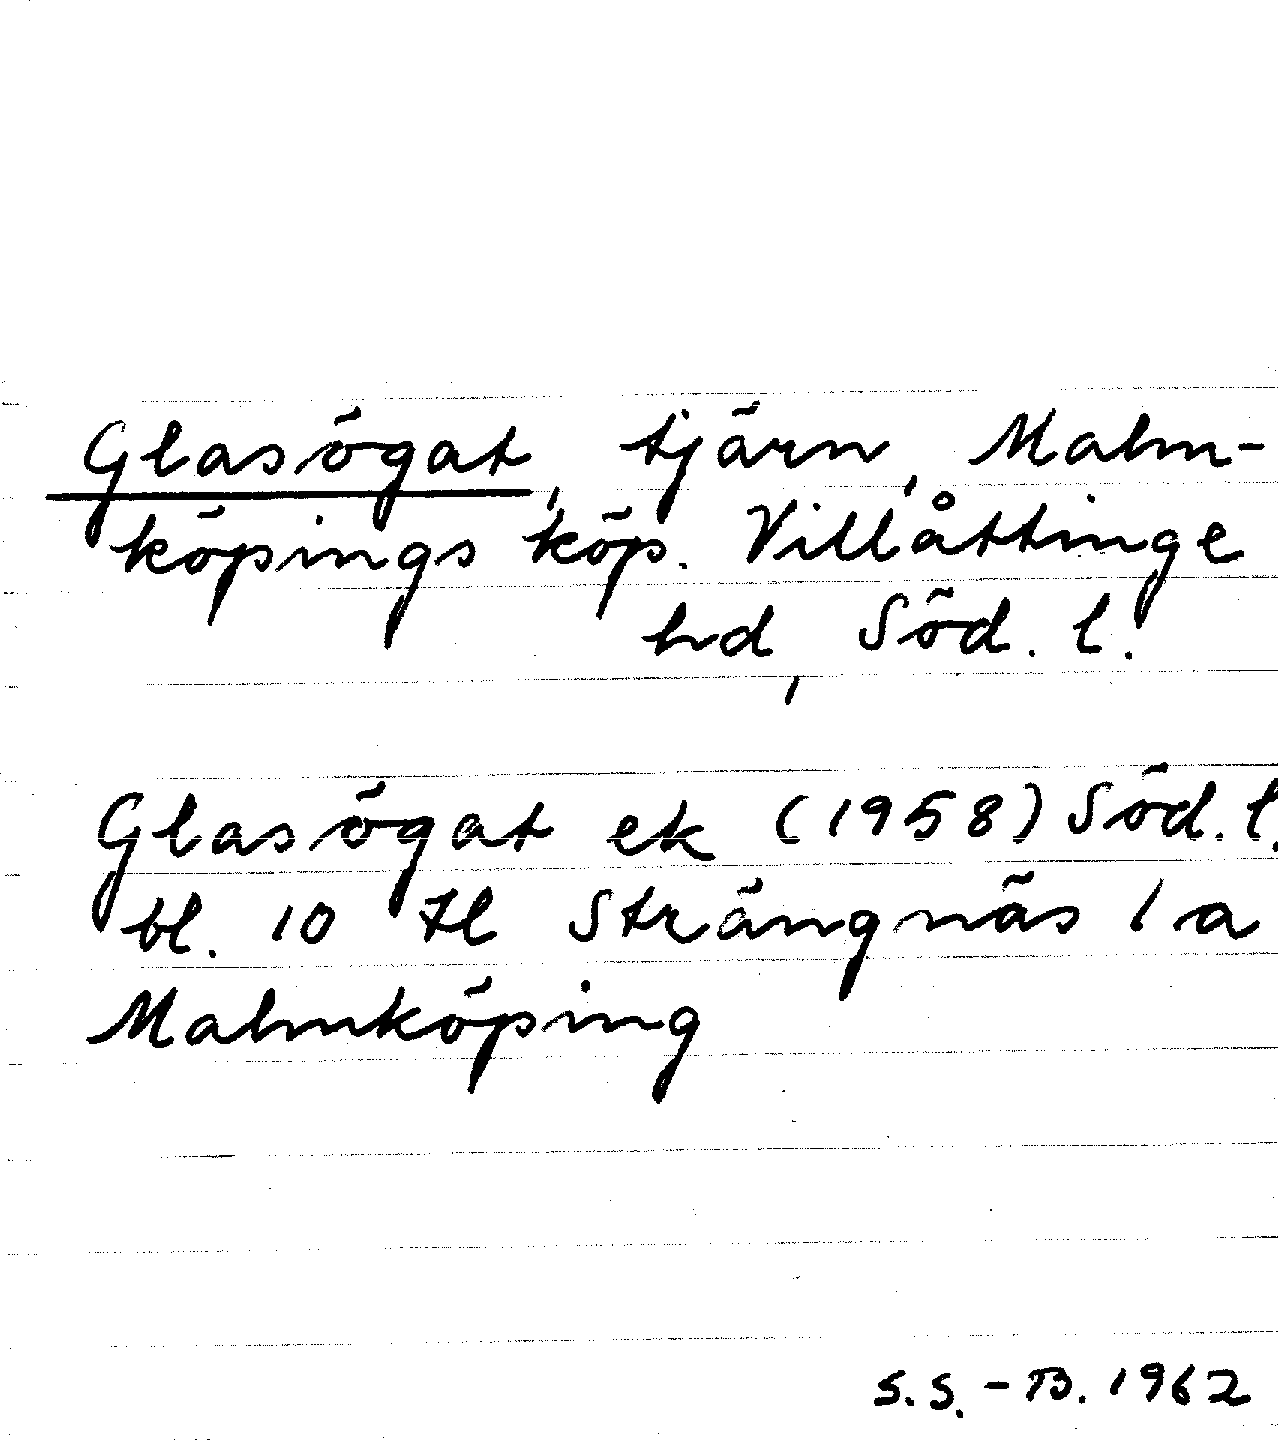 Glasögat, tjärn, Malm-
köpings köp. Villåttinge
hd, Söd. l.
Glasögat ek (1958) Söd. l.
bl. 10 Hl Strängnäs 1 a
Malmköping
S.S.-B. 1962